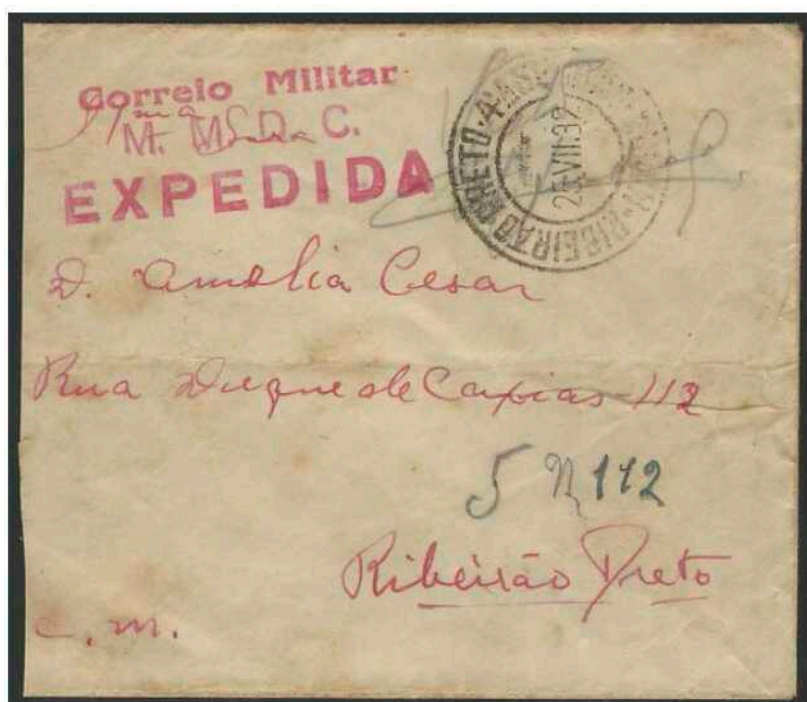 Correio Militar
Exma Snra
M. M. D. C.
EXPEDIDA
RIBEIRÃO PRETO
25.VII.32
D. Amelia Cesar
Rua Duque de Caxias 112
5 N 112
Ribeirão Preto
C. M.